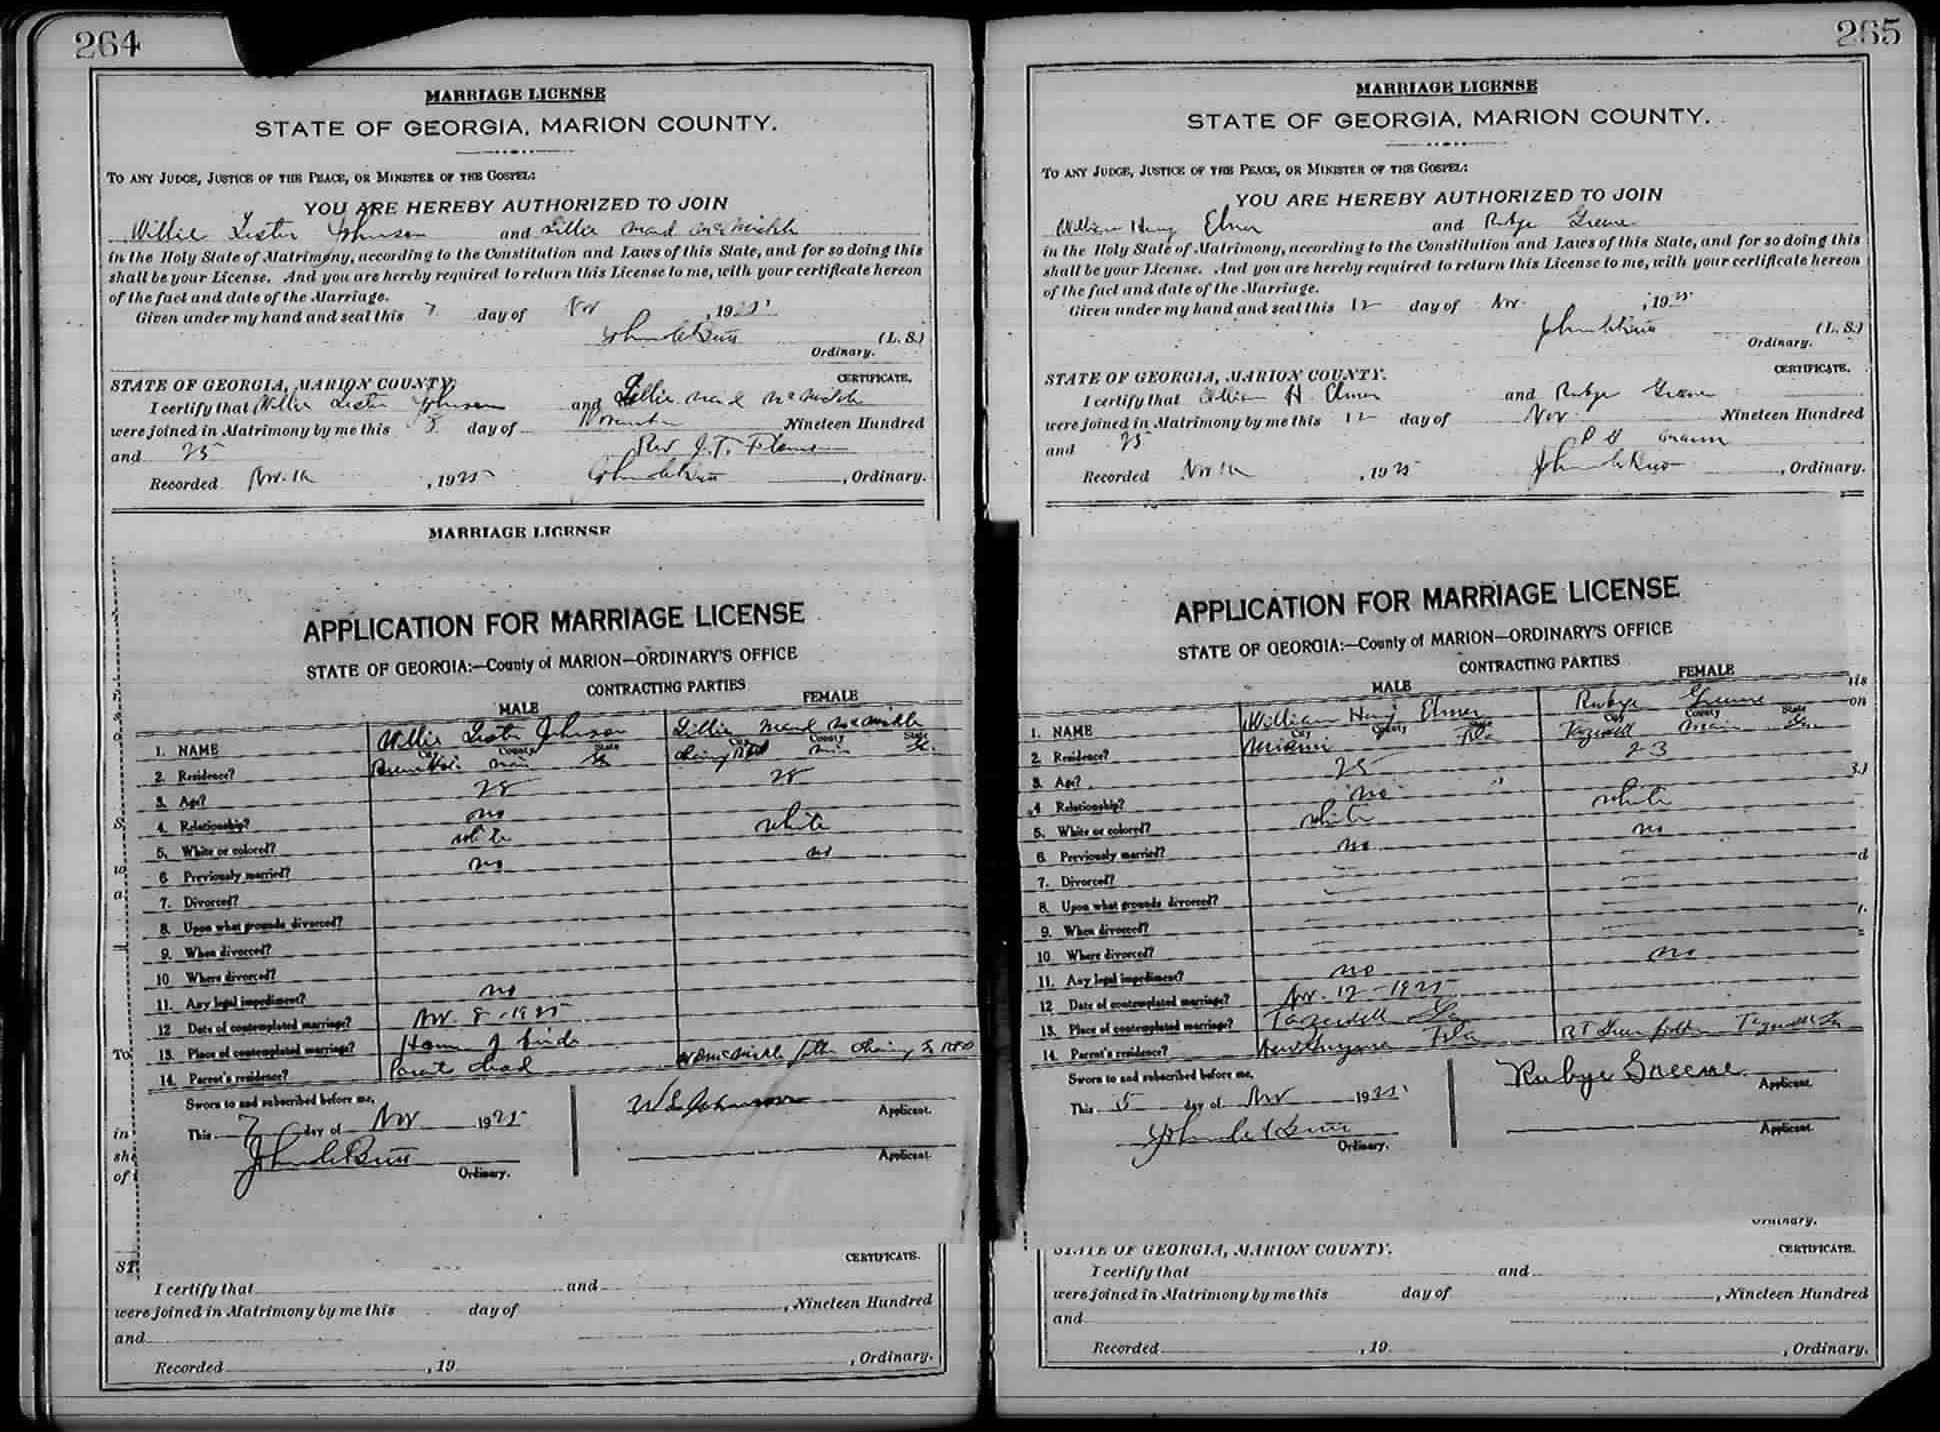 264
MARRIAGE LICENSE
STATE OF GEORGIA, MARION COUNTY.
TO ANY JUDGE, JUSTICE OF THE PEACE, OR MINISTER OF THE GOSPEL:
YOU ARE HEREBY AUTHORIZED TO JOIN
Willie Lester Johnson and Lillie Maud McMickle
in the Holy State of Matrimony, according to the Constitution and Laws of this State, and for so doing this
shall be your License. And you are hereby required to return this License to me, with your certificate hereon
of the fact and date of the Marriage.
Given under my hand and seal this 7 day of Nov, 1925
John C Butt (L. S.)
Ordinary.
STATE OF GEORGIA, MARION COUNTY. CERTIFICATE.
I certify that Willie Lester Johnson and Lillie Maud McMickle
were joined in Matrimony by me this 8 day of November Nineteen Hundred
and 25 Rev J. T.
Recorded Nov. , 1925 John C Butt, Ordinary.
MARRIAGE LICENSE
APPLICATION FOR MARRIAGE LICENSE
STATE OF GEORGIA:—County of MARION—ORDINARY'S OFFICE
CONTRACTING PARTIES
MALE FEMALE
1. NAME Willie Lester Johnson Lillie Maud McMickle
City County State City County State
2. Residence? Ga Ga.
3. Age? 28 28
4. Relationship? no
5. White or colored? white white
6 Previously married? no no
7. Divorced?
8. Upon what grounds divorced?
9. When divorced?
10 Where divorced?
11. Any legal impediment? no
12 Date of contemplated marriage? Nov. 8-1925
13. Place of contemplated marriage? Home of bride
14. Parent's residence? Parents dead McMickle father
Sworn to and subscribed before me,
This 7 day of Nov 1925 W L Johnson Applicant.
John C Butt
Ordinary. Applicant.
CERTIFICATE.
I certify that and
were joined in Matrimony by me this day of , Nineteen Hundred
and
Recorded , 19 , Ordinary.
265
MARRIAGE LICENSE
STATE OF GEORGIA, MARION COUNTY.
TO ANY JUDGE, JUSTICE OF THE PEACE, OR MINISTER OF THE GOSPEL:
YOU ARE HEREBY AUTHORIZED TO JOIN
William Henry Elmer and Rubye Greene
in the Holy State of Matrimony, according to the Constitution and Laws of this State, and for so doing this
shall be your License. And you are hereby required to return this License to me, with your certificate hereon
of the fact and date of the Marriage.
Given under my hand and seal this 12 day of Nov. , 1925
John C Butt (L. S.)
Ordinary.
STATE OF GEORGIA, MARION COUNTY. CERTIFICATE.
I certify that William H. Elmer and Rubye Greene
were joined in Matrimony by me this 12 day of Nov. Nineteen Hundred
and 25
Recorded Nov , 1925 John C Butt, Ordinary.
APPLICATION FOR MARRIAGE LICENSE
STATE OF GEORGIA:—County of MARION—ORDINARY'S OFFICE
CONTRACTING PARTIES
MALE FEMALE
1. NAME William Henry Elmer Rubye Greene
City County State City County State
2. Residence? Miami Fla Tazewell Marion Ga.
3. Age? 25 23
4. Relationship? no "
5. White or colored? white white
6 Previously married? no no
7. Divorced?
8. Upon what grounds divorced?
9. When divorced?
10 Where divorced?
11. Any legal impediment? no no
12 Date of contemplated marriage? Nov. 12-1925
13. Place of contemplated marriage? Tazewell Ga
14. Parent's residence? New Smyrna Fla Tazewell Ga
Sworn to and subscribed before me,
This 5 day of Nov 1925 Rubye Greene Applicant.
John C Butt
Ordinary. Applicant.
Ordinary.
STATE OF GEORGIA, MARION COUNTY. CERTIFICATE.
I certify that and
were joined in Matrimony by me this day of , Nineteen Hundred
and
Recorded , 19 , Ordinary.